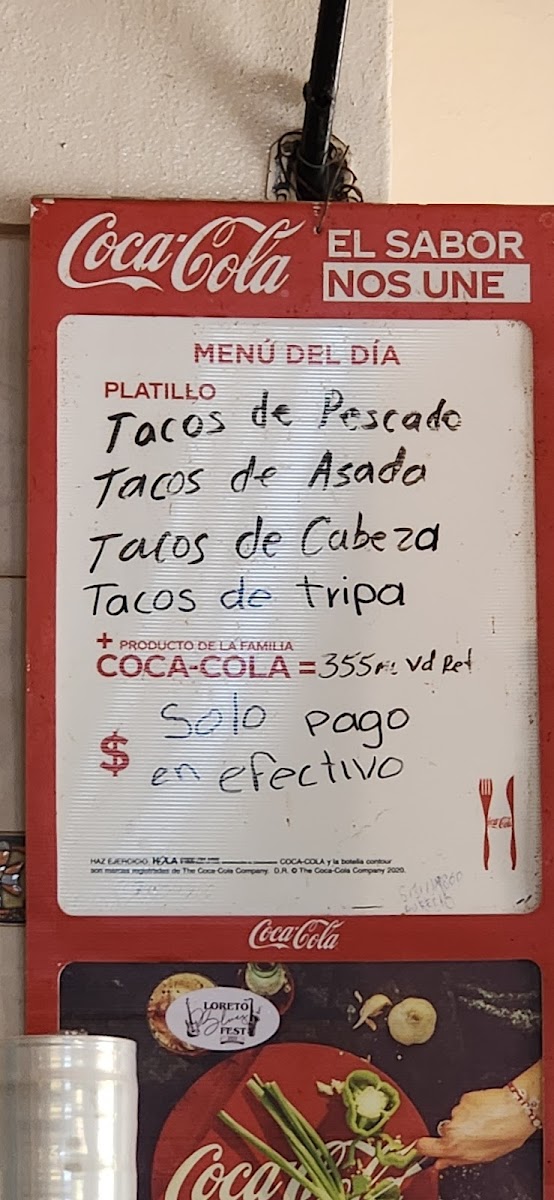 Coca-Cola EL SABOR
NOS UNE
MENÚ DEL DÍA
PLATILLO
Tacos de Pescado
Tacos de Asada
Tacos de Cabeza
Tacos de tripa
+ PRODUCTO DE LA FAMILIA
COCA-COLA = 355ml vd Ret
$ Solo pago
en efectivo
Coca-Cola
HAZ EJERCICIO. COCA-COLA y la botella contour
son marcas registradas de The Coca-Cola Company. D.R. © The Coca-Cola Company 2020.
Coca-Cola
LORETO
Blues
FEST
Coca-Cola